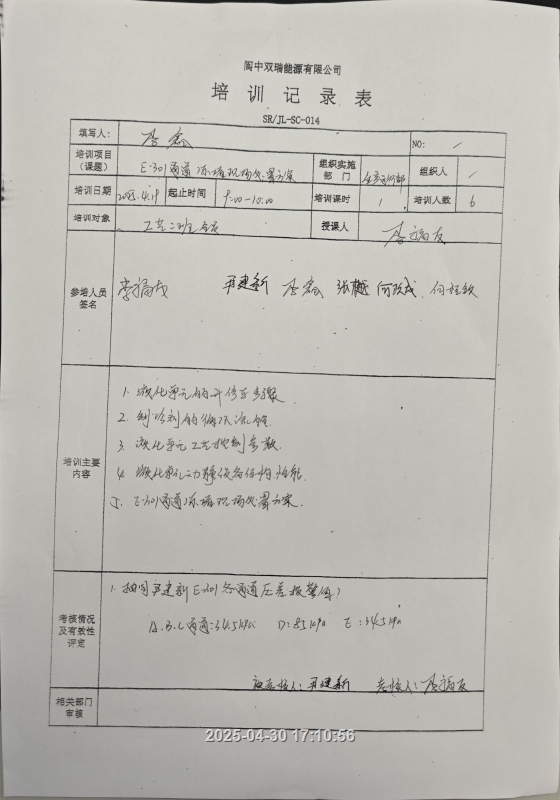 阆中双瑞能源有限公司
培训记录表
SR/JL-SC-014
填写人： 唐鑫 NO: /
培训项目（课题） E-301通道冻堵现场处置方案 组织实施部门 组织人 /
培训日期 2025.4.19 起止时间 9:00-10:00 培训课时 1 培训人数 6
培训对象 工艺二班全员 授课人
参培人员签名 尹建新 唐鑫 张樾 何政成
培训主要内容
1. 液化单元的开停车步骤
2. 制冷剂的循环流程
3. 液化单元工艺控制参数
4. 液化单元动静设备任的性能
5. E-301通道冻堵现场处置方案
考核情况及有效性评定
1. 抽问尹建新E-301各通道压差报警值？
A.B.C通道:34.5kPa D:85kPa E:34.5kPa
被考核人：尹建新 考核人：
相关部门审核
2025-04-30 17:10:56